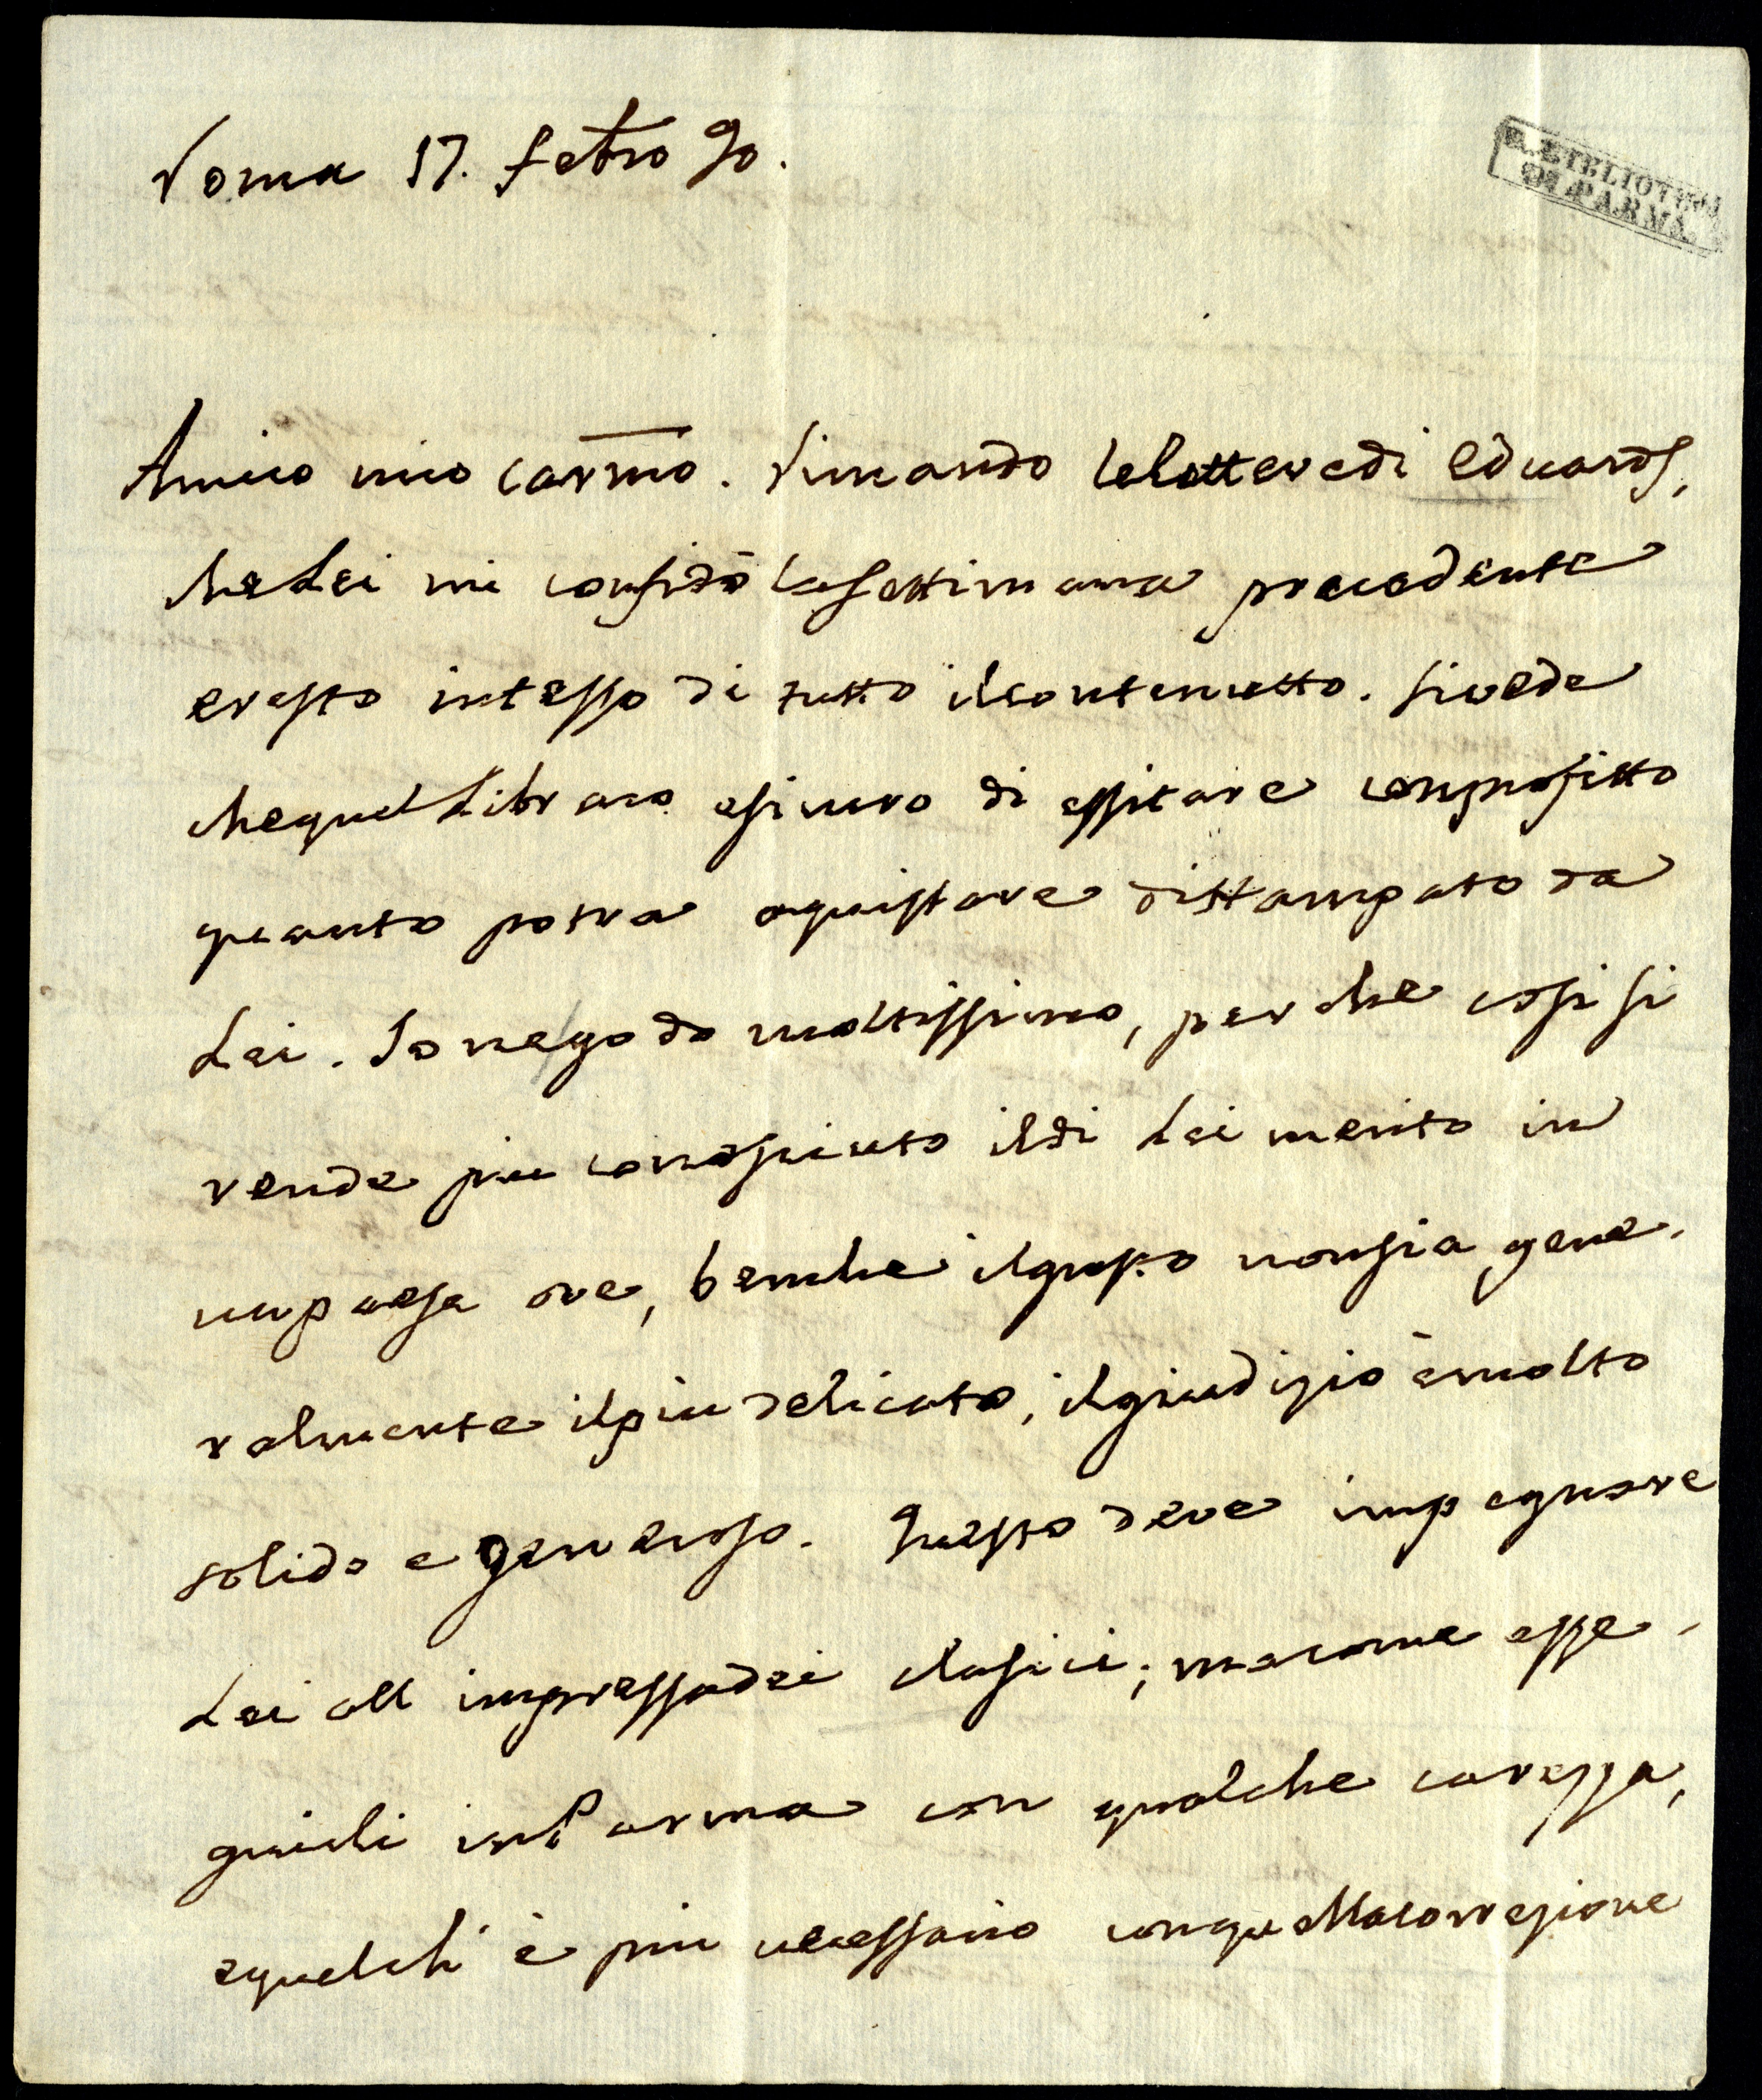 Roma 17. febro 90.
R. BIBLIOTECA
DI PARMA
Amico mio carmo. Rimando le lettere di Eduards,
che Lei mi confidò la settimana precedente
e resto intesso di tutto il contenutto. Si vede
che quel Libraro è sicuro di essitare con profitto
quanto potra aquistare di stampato da
Lei. Io ne godo moltissimo, perche cosi si
rende piu conosciuto il di Lei merito in
un paese ove, benche il gusto non sia gene-
ralmente il piu delicato, il giudizio è molto
solido e generoso. Questo deve impegnare
Lei all impressa dei clasici; ma come esse-
guirli in Parma con qualche carezza,
e quel ch' è piu necessario con quella corezione